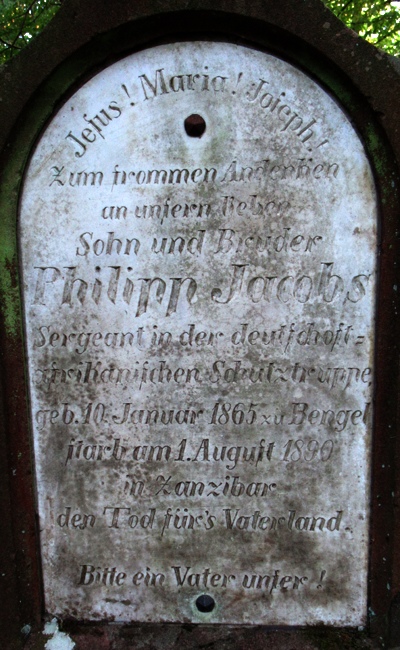 Jesus! Maria! Joseph!
Zum frommen Andenken
an unsern lieben
Sohn und Bruder
Philipp Jacobs
Sergeant in der deutschost=
afrikanischen Schutztruppe,
geb. 10. Januar 1865 zu Bengel
starb am 1. August 1890
in Zanzibar
den Tod für's Vaterland.
Bitte ein Vater unser!